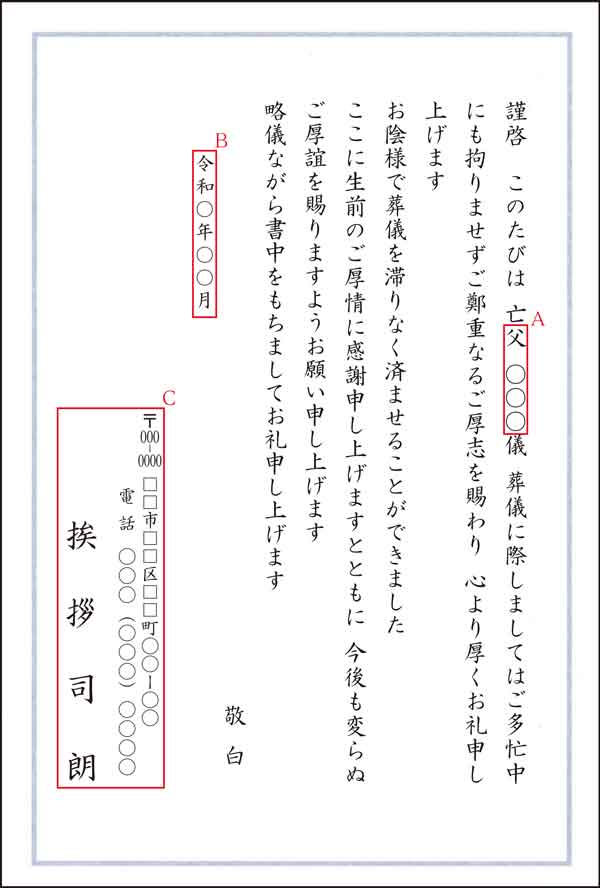 謹啓　このたびは 亡父 〇〇〇儀 葬儀に際しましてはご多忙中
にも拘りませずご鄭重なるご厚志を賜わり 心より厚くお礼申し
上げます
お陰様で葬儀を滞りなく済ませることができました
ここに生前のご厚情に感謝申し上げますとともに 今後も変らぬ
ご厚誼を賜りますようお願い申し上げます
略儀ながら書中をもちましてお礼申し上げます
敬白
令和〇年〇〇月
〒000-0000 □□市□□区□□町〇〇ー〇〇
電話 〇〇〇（〇〇〇）〇〇〇〇
挨拶司朗
A
B
C